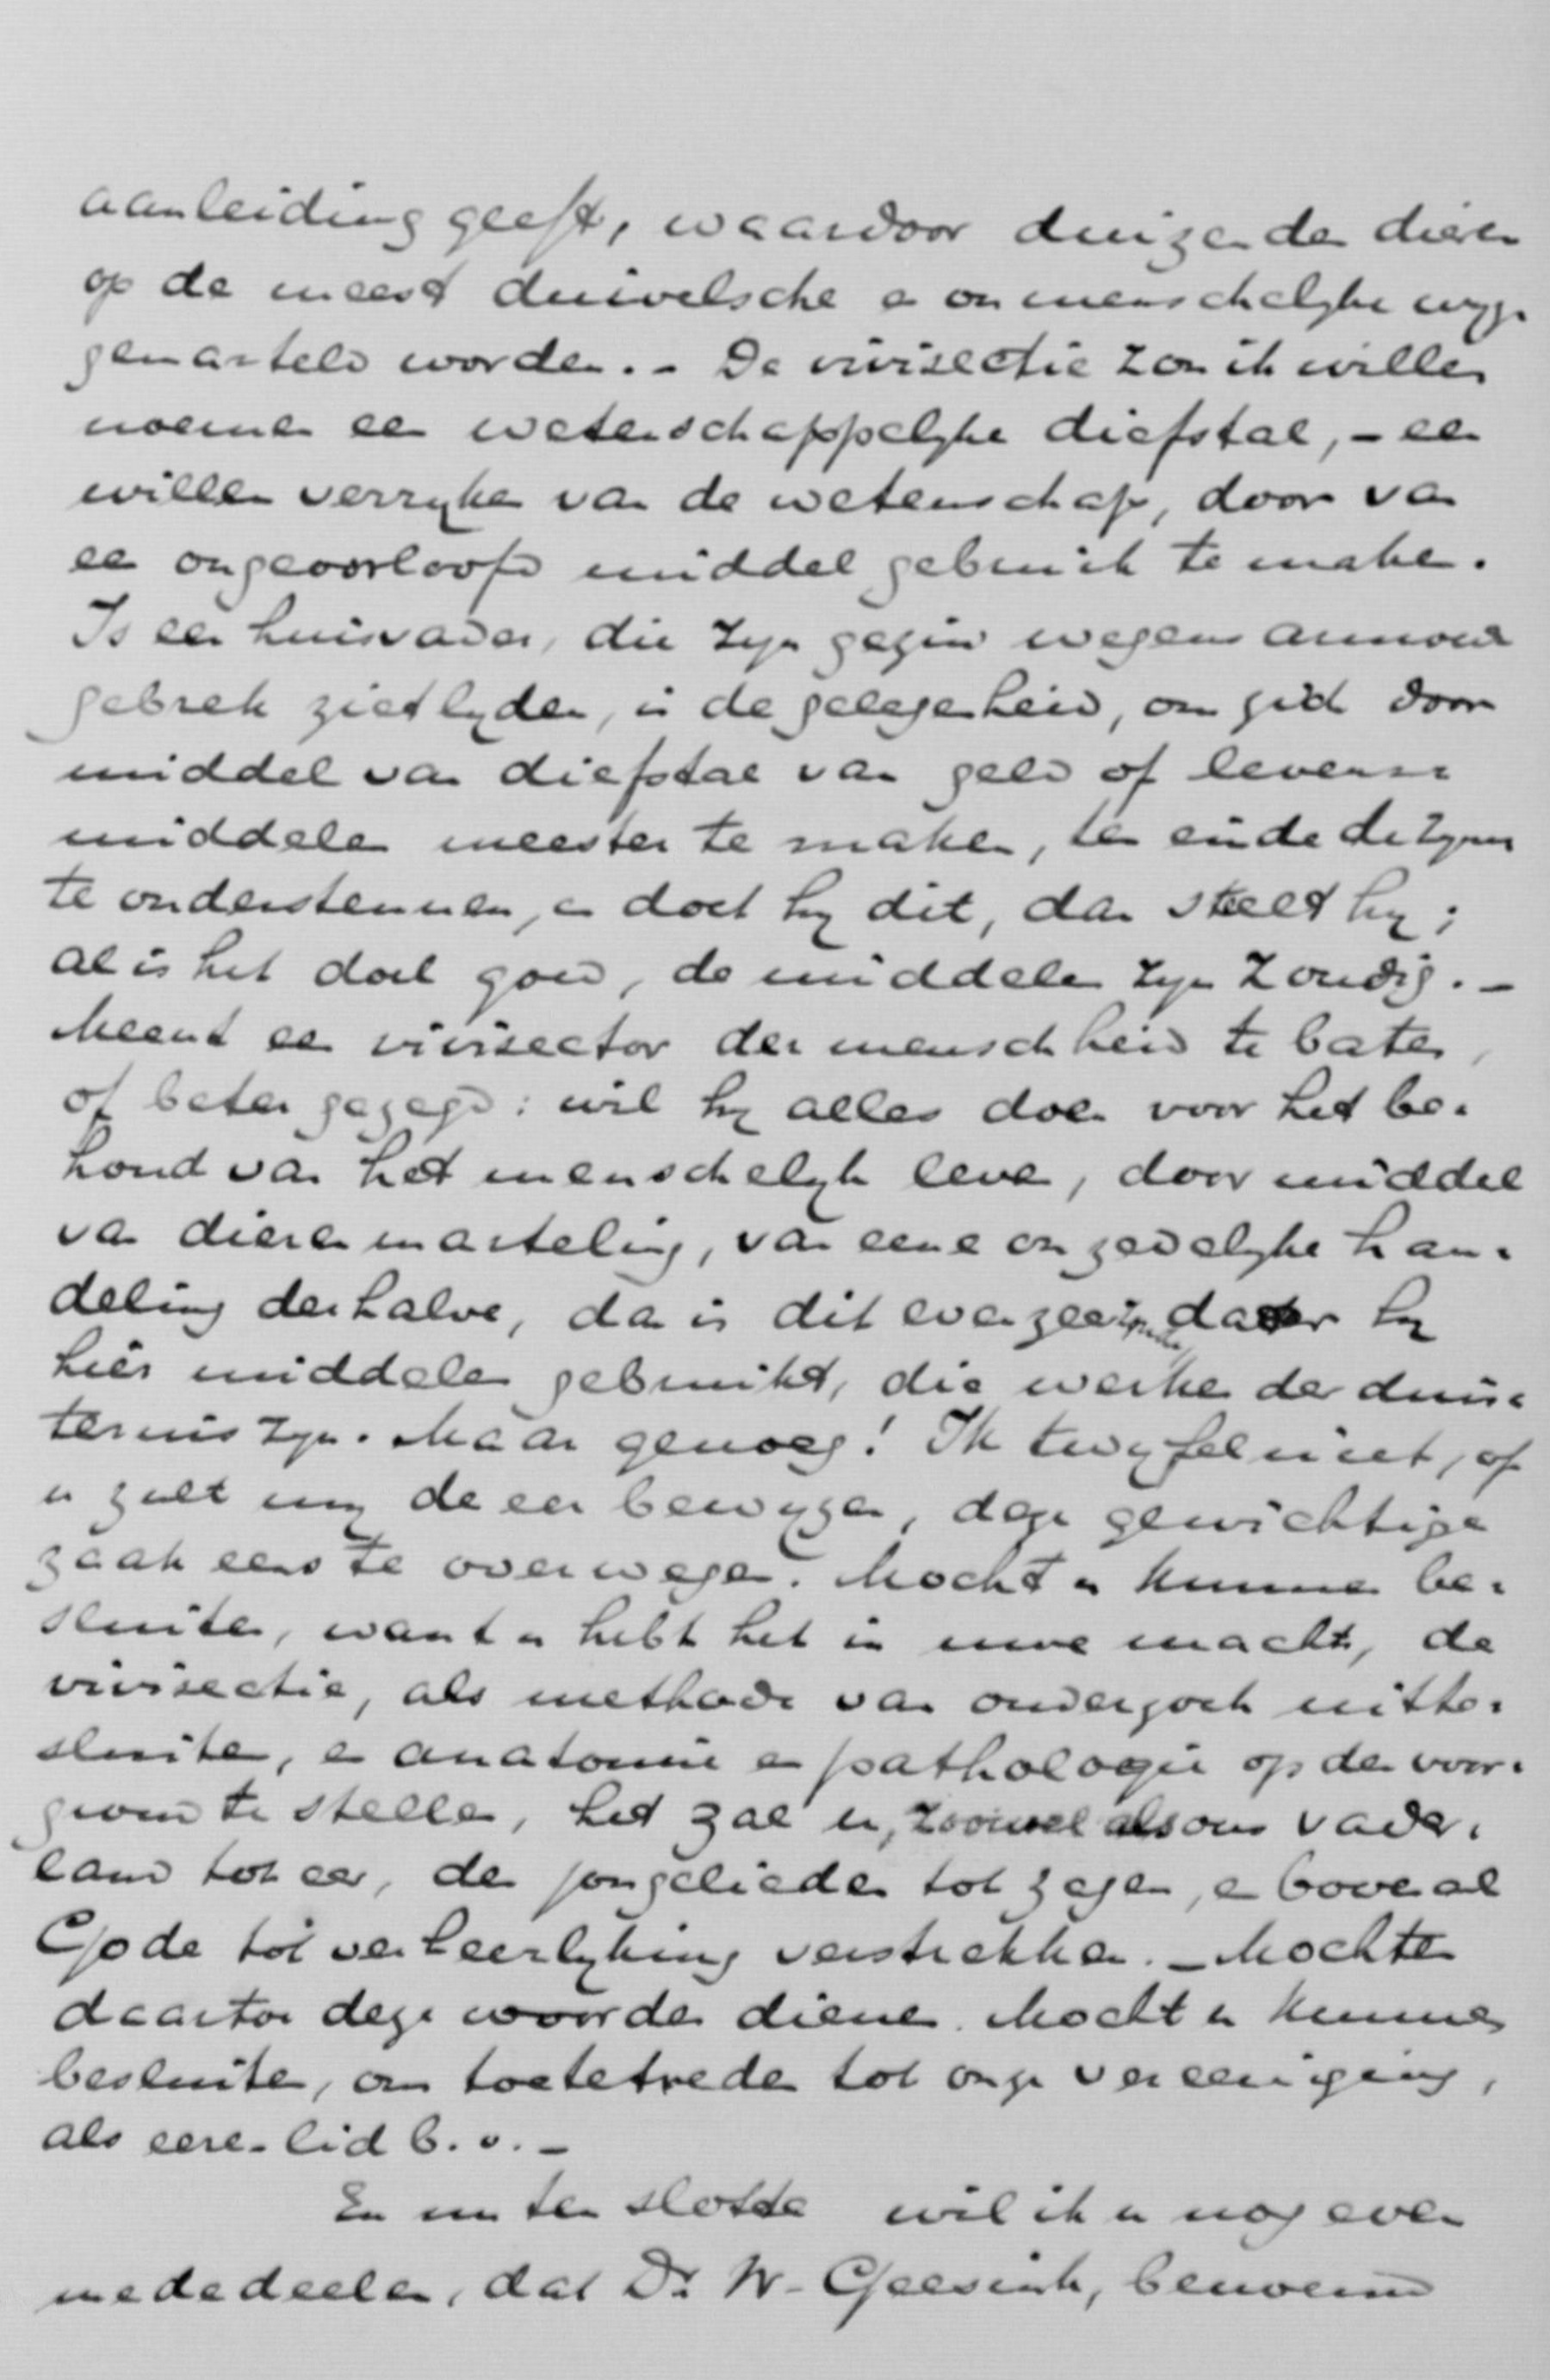 aanleiding geeft, waardoor duizenden dieren
op de meest duivelsche en onmenschelyke wyze
gemarteld worden. - De vivisectie zou ik willen
noemen een wetenschappelyke diefstal, - een
willen verryken van de wetenschap, door van
een ongeoorloofd middel gebruik te maken.
Is een huisvader, die zyn gezin wegens armoede
gebrek ziet lyden, in de gelegenheid, om zich door
middel van diefstal van geld of levens-
middelen meester te maken, ten einde de zynen
te ondersteunen, en doet hy dit, dan steelt hy;
al is het doel goed, de middelen zyn zondig. -
Meent een vivisector der menschheid te baten,
of beter gezegd: wil hy alles doen voor het be-
houd van het menschelyk leven, door middel
van dierenmarteling, van eene onzedelyke han-
deling derhalve, dan is dit evenzeer daar hy
hier middelen gebruikt, die werken der duis-
ternis zyn. Maar genoeg! Ik twyfel niet, of
u zult my de eer bewyzen, deze gewichtige
zaak eens te overwegen. Mocht u kunnen be-
sluiten, want u hebt het in uwe macht, de
vivisectie, als methode van onderzoek uitte-
sluiten, en anatomie en pathologie op den voor-
grond te stellen, het zal u, zoowel als ons vader-
land tot eer, den jongelieden tot zegen, en bovenal
Gode tot verheerlyking verstrekken. - Mochten
daartoe deze woorden dienen. Mocht u kunnen
besluiten, om toetetreden tot onze vereeniging,
als eere-lid b.v. -
En nu ten slotte wil ik u nog even
mededeelen, dat Dr. W. Geesink, benoemd